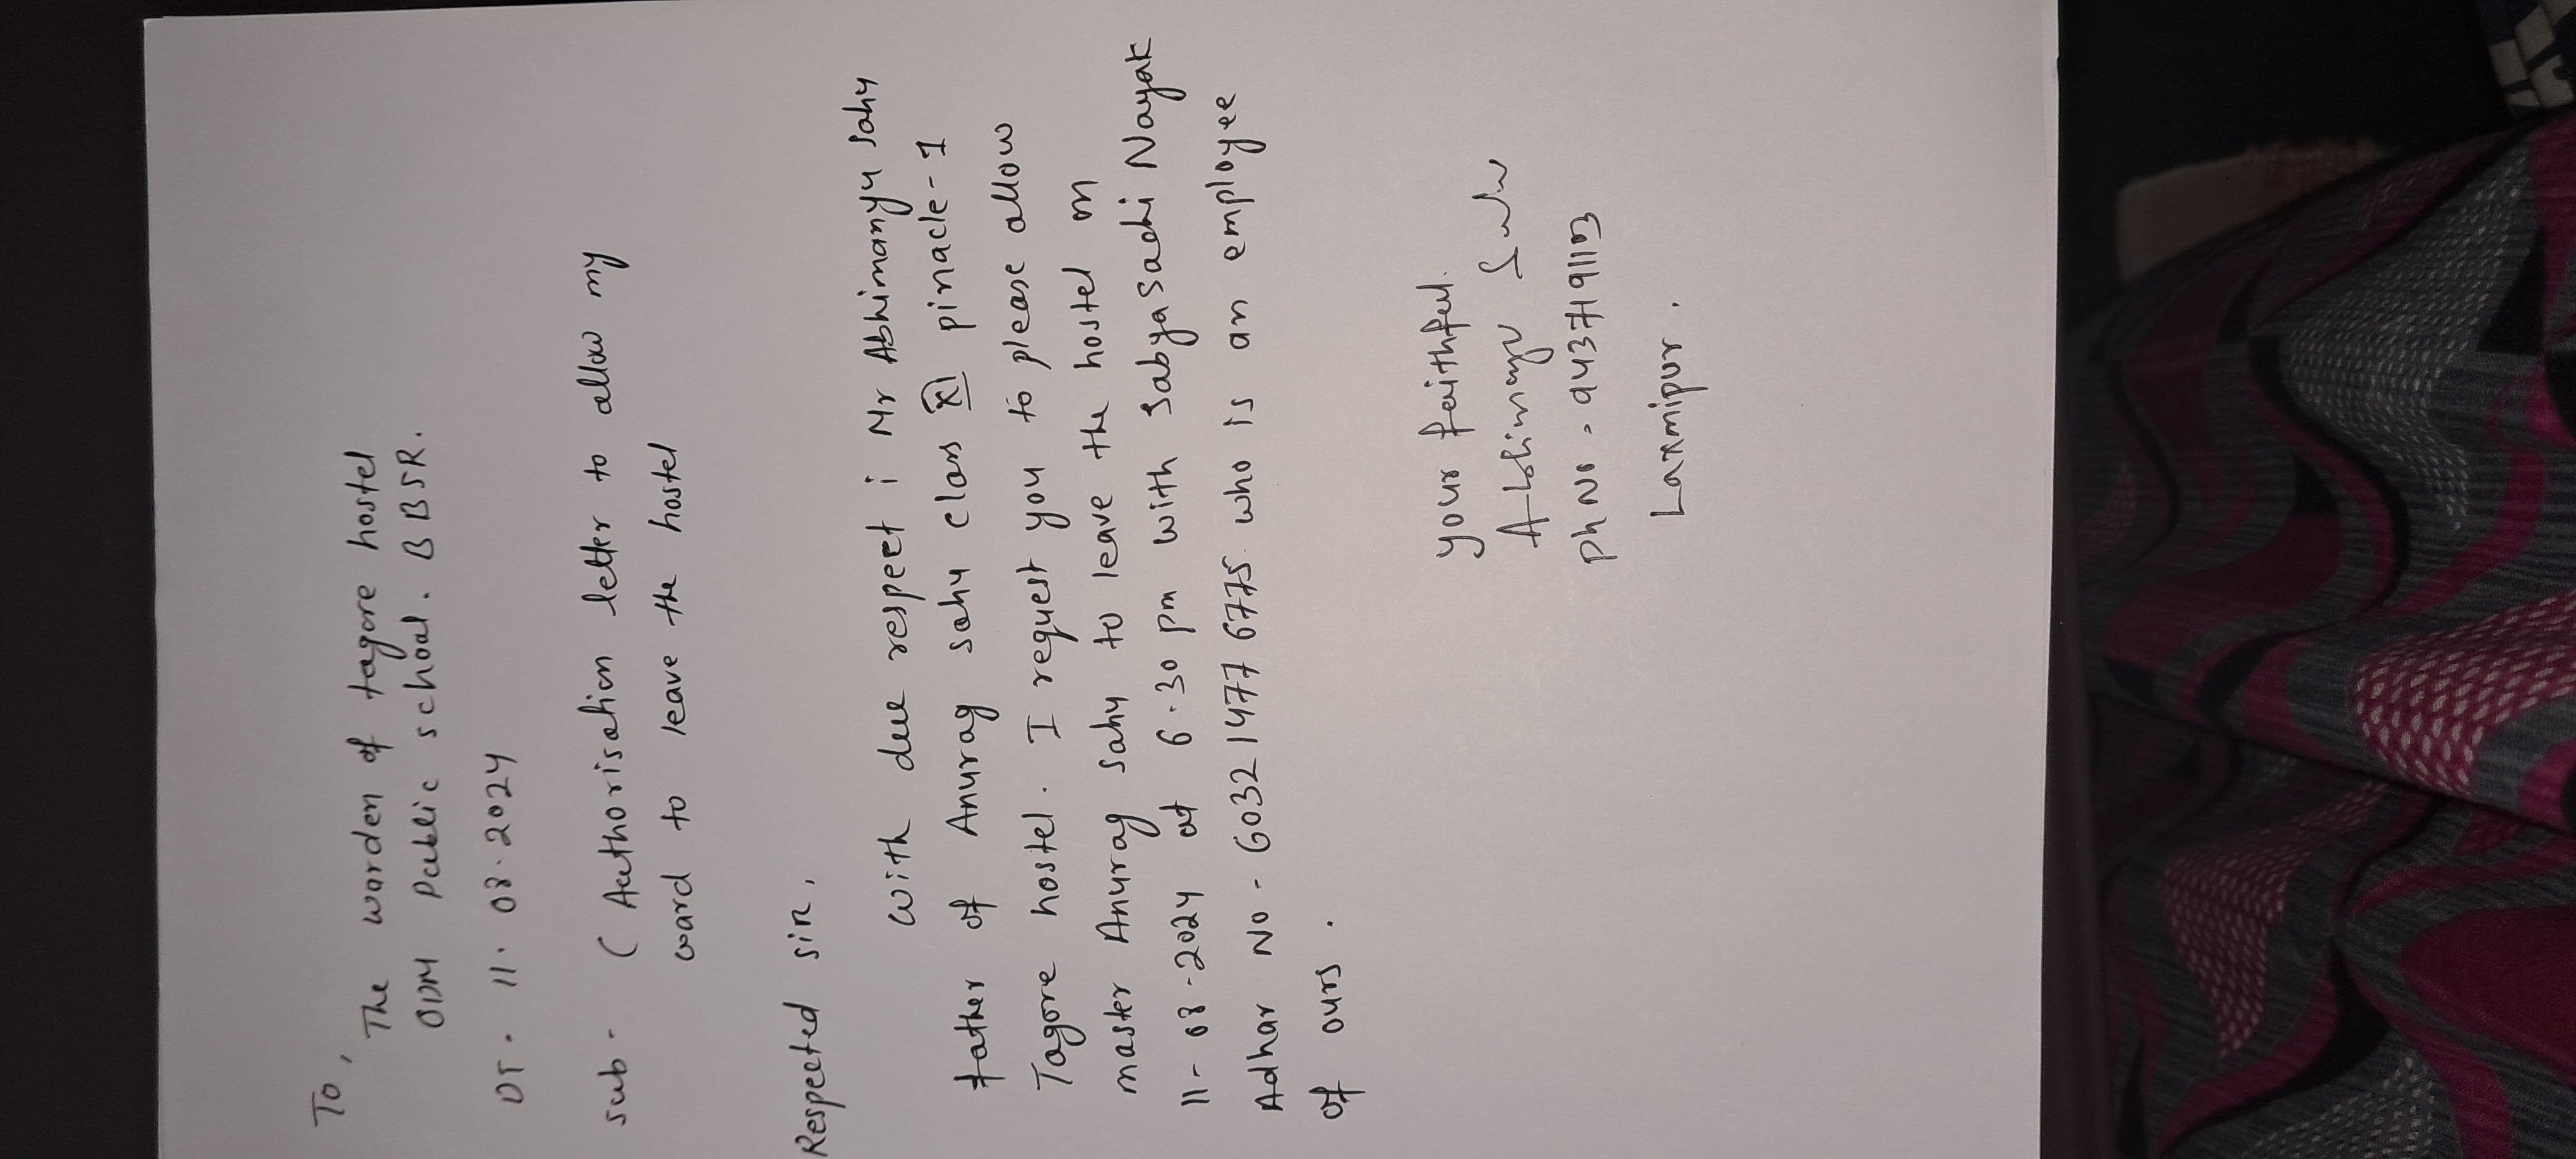 To,
The warden of tagore hostel
ODM Public school. BBSR.
DT. 11. 08. 2024
Sub- (Authorisation letter to allow my
ward to leave the hostel
Respected sir,
With due respect i Mr Abhimanyu sahu
father of Anurag sahu class XI pinacle-1
Tagore hostel. I request you to please allow
master Anurag sahu to leave the hostel on
11-08-2024 at 6.30 pm with Sabyasachi Nayak
Adhar No- 6032 1477 6775 who is an employee
of ours.
your faithful.
Abhimanyu Sahu
Ph No - 9437191103
Laxmipur.